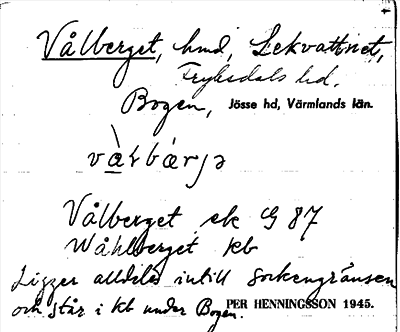 Vålberget, hmd, Lekvattnet,
Fryksdals hd.
Bogen, Jösse hd, Värmlands län.
Vålberget ek G 87
Wåhlberget kb
Ligger alldeles intill sockengränsen
och står i kb under Bogen. PER HENNINGSSON 1945.